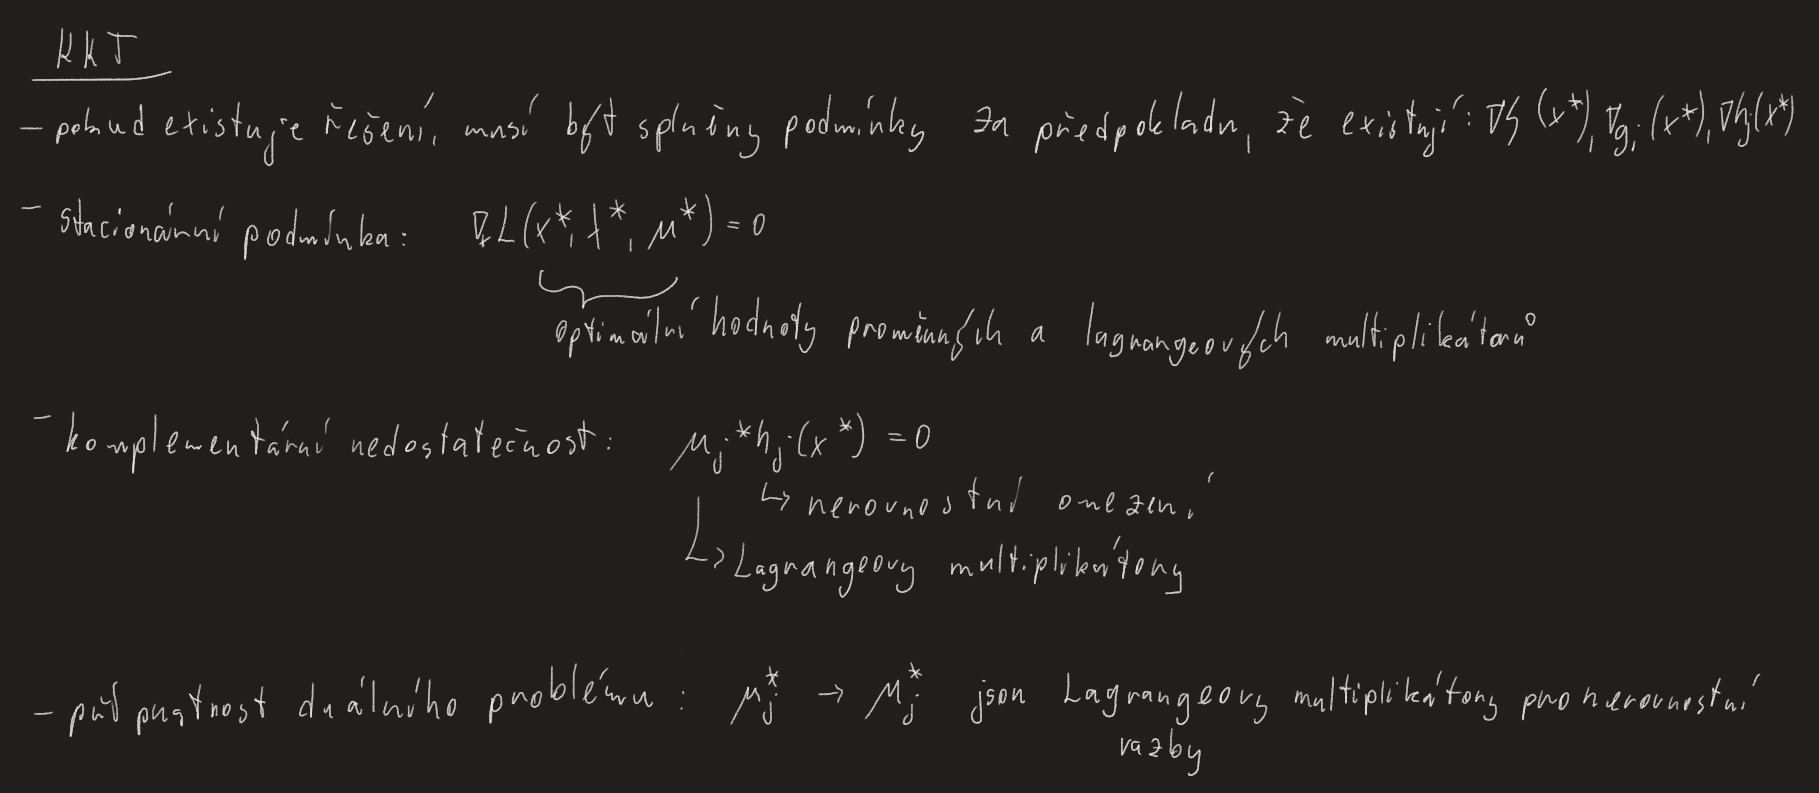 KKT
- pokud existuje řešení, musí být splněny podmínky za předpokladu, že existují: ∇f(x*), ∇gᵢ(x*), ∇hⱼ(x*)
- stacionární podmínka: ∇ₓL(x*, λ*, μ*) = 0
optimální hodnoty proměnných a lagrangeových multiplikátorů
- komplementární nedostatečnost: μⱼ*hⱼ(x*) = 0
↳ nerovnostní omezení
↳ Lagrangeovy multiplikátory
- přípustnost duálního problému: μⱼ* → μⱼ* jsou Lagrangeovy multiplikátory pro nerovnostní
vazby